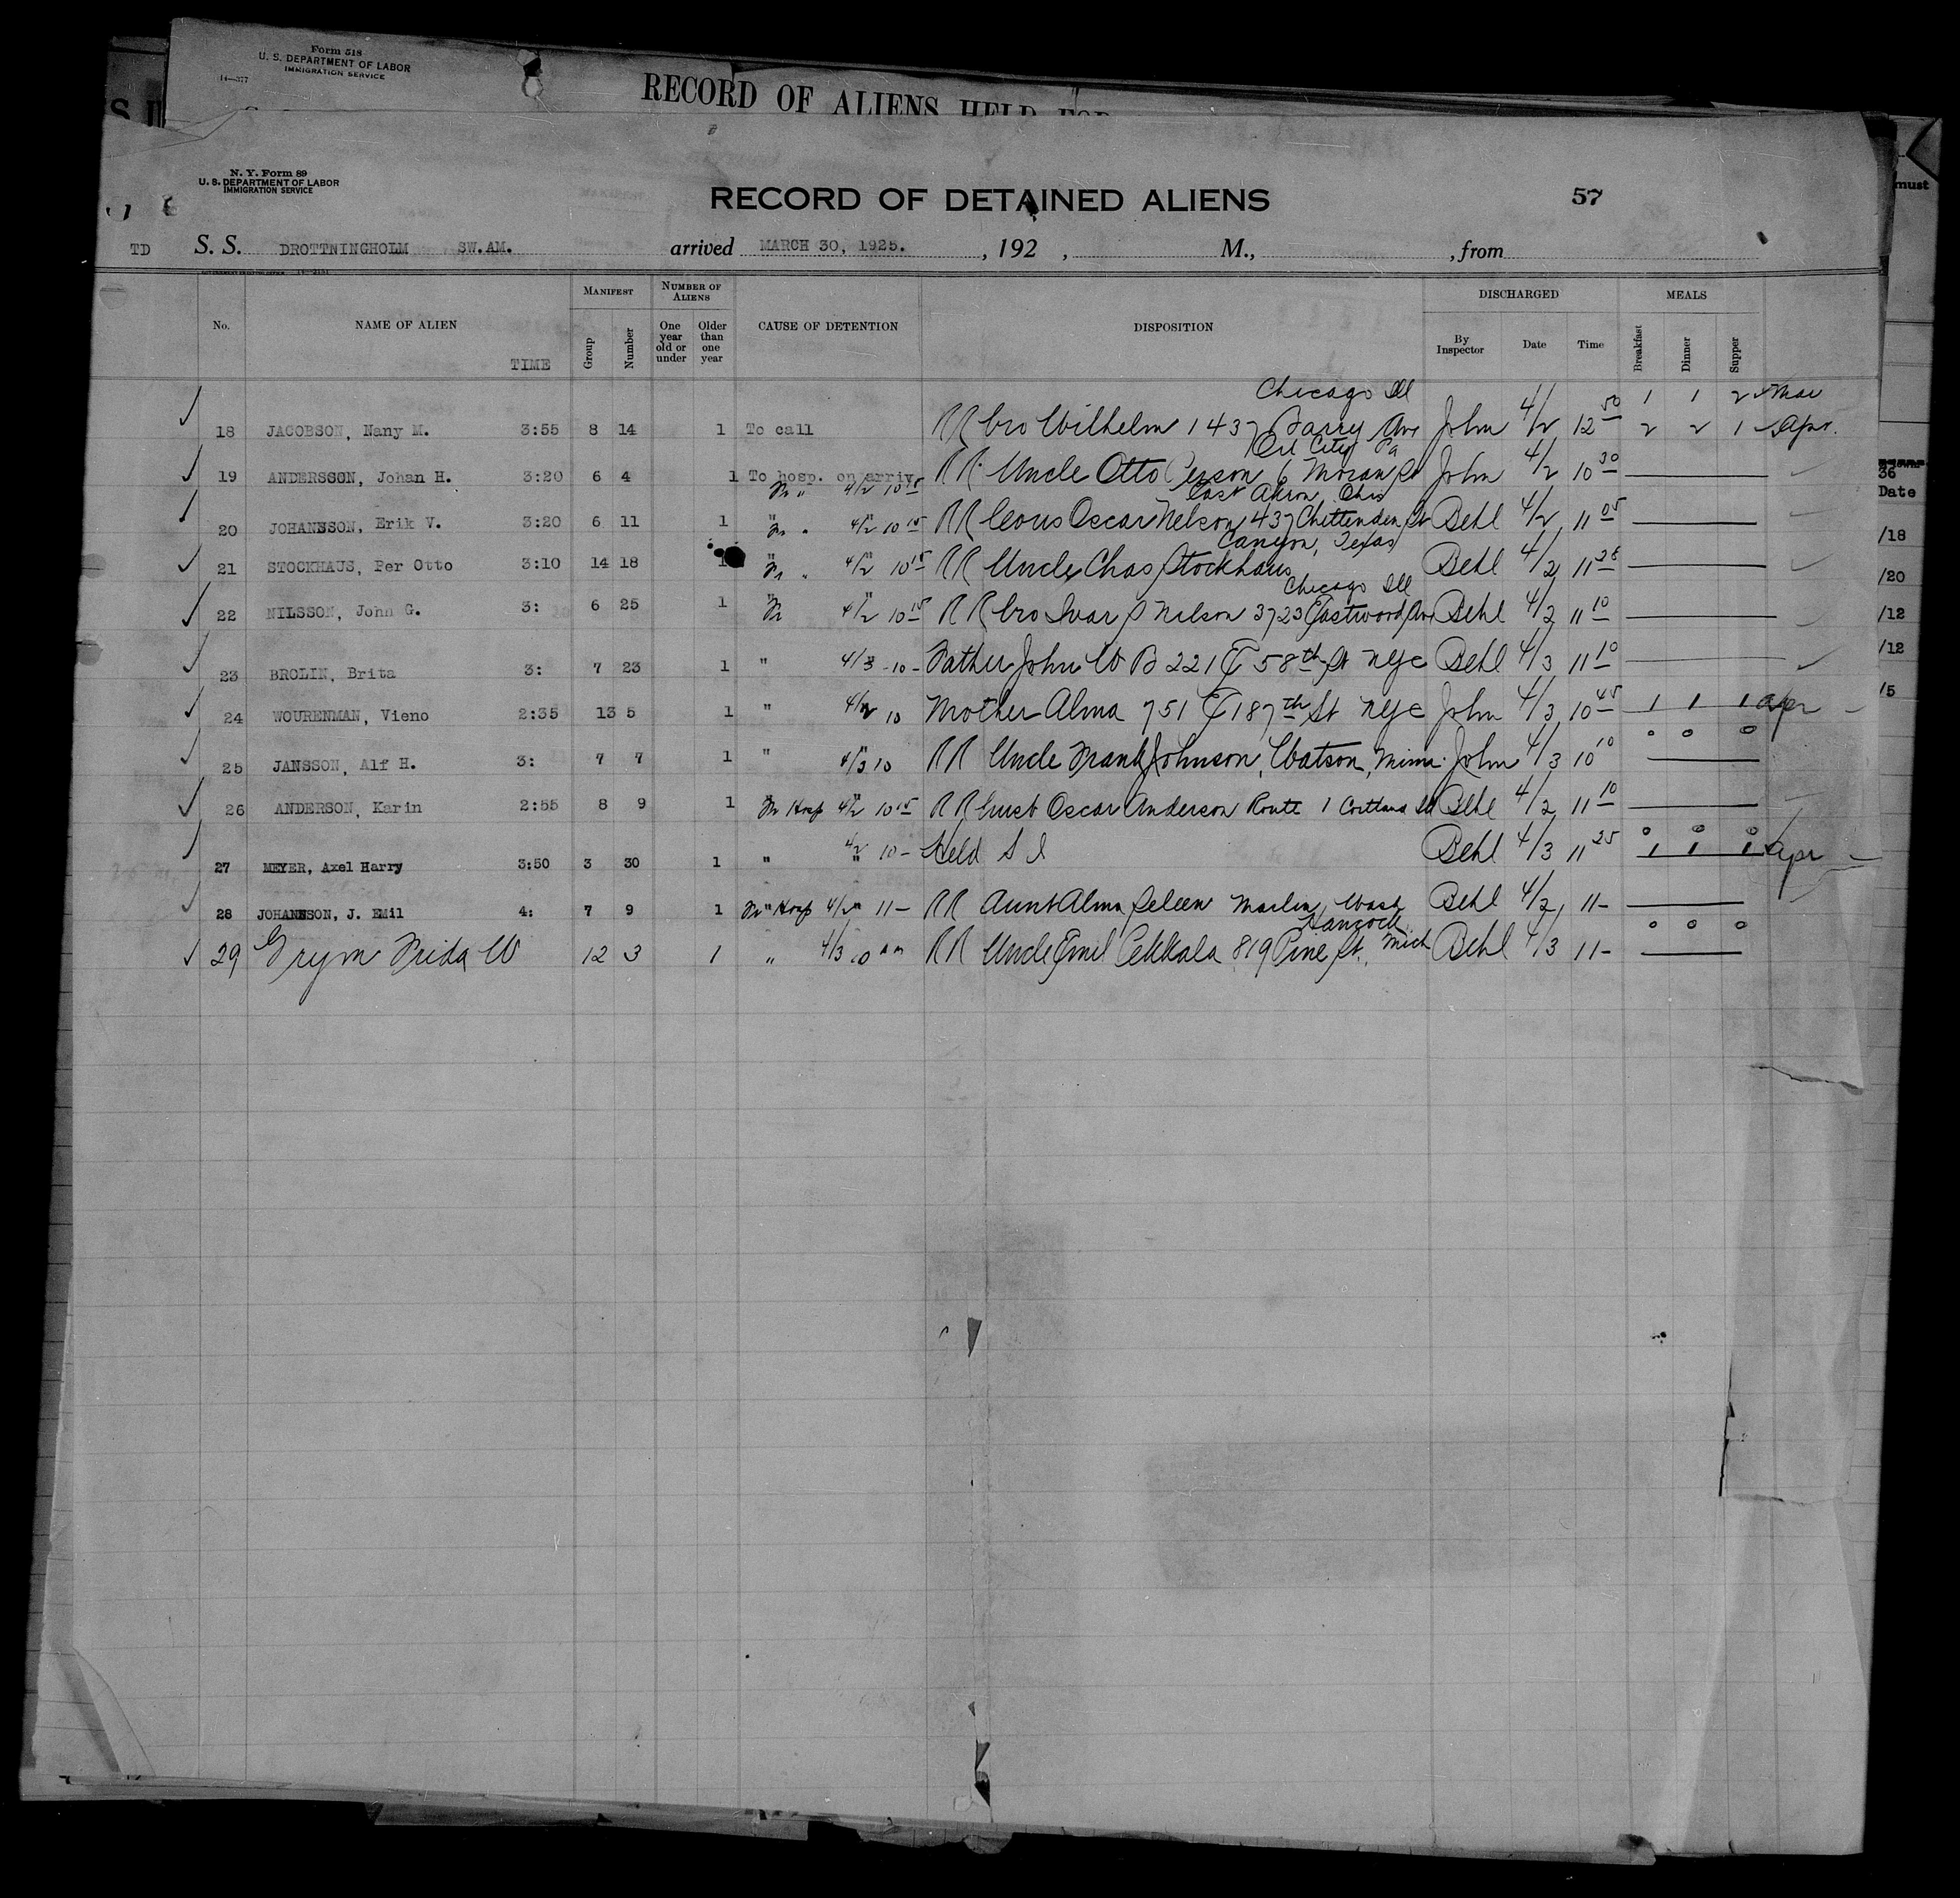 Form 518
U. S. DEPARTMENT OF LABOR
IMMIGRATION SERVICE
14—377
RECORD OF ALIENS HELD FOR
N. Y. Form 89
U. S. DEPARTMENT OF LABOR
IMMIGRATION SERVICE
RECORD OF DETAINED ALIENS
57
must
TD S. S. DROTTNINGHOLM SW.AM. arrived MARCH 30, 1925. , 192 , M., , from
No. NAME OF ALIEN TIME MANIFEST Group Number NUMBER OF ALIENS One year old or under Older than one year CAUSE OF DETENTION DISPOSITION DISCHARGED By Inspector Date Time MEALS Breakfast Dinner Supper
Chicago Ill 1 1 2 Mar
18 JACOBSON, Nany M. 3:55 8 14 1 To call RR bro Wilhelm 1437 Barry Ave John 4/2 12 50 2 2 1 Apr.
Oil City Pa
19 ANDERSSON, Johan H. 3:20 6 4 1 To hosp. on arriv. 4/2 10 15 RR Uncle Otto Person 6 Moran St John 4/2 10 30
East Akron, Ohio
20 JOHANSSON, Erik V. 3:20 6 11 1 " 4/2 10 15 RR Cous Oscar Nelson 437 Chittenden St Behl 4/2 11 05
Canyon, Texas
21 STOCKHAUS, Per Otto 3:10 14 18 1 " 4/2 10 15 RR Uncle Chas Stockhaus Behl 4/2 11 28
Chicago Ill
22 NILSSON, John G. 3: 6 25 1 " 4/2 10 15 RR bro Ivar P Nelson 3723 Eastwood Ave Behl 4/2 11 10
23 BROLIN, Brita 3: 7 23 1 " 4/3 10- Father John W B 221 E 58th St NYC Behl 4/3 11 10
24 WOURENMAN, Vieno 2:35 13 5 1 " 10 Mother Alma 751 E 187th St NYC John 4/3 10 45 1 1 1 apr
25 JANSSON, Alf H. 3: 7 7 1 " 4/3 10 RR Uncle Frank Johnson, Watson, Minn. John 4/3 10 10 0 0 0
26 ANDERSON, Karin 2:55 8 9 1 " Hosp 4/2 10 15 RR Oscar Anderson Route 1 Cortland Behl 4/2 11 10
27 MEYER, Axel Harry 3:50 3 30 1 " 4/2 10- Held S I Behl 4/3 11 25 0 0 0 1 1 1 Apr
28 JOHANNSON, J. EMil 4: 7 9 1 " Hosp 4/2 11- RR Aunt Alma Seleen Marlin, Wash Behl 4/2 11-
Hancock
29 Grym Frida W 12 3 1 " 4/3 10 am RR Uncle Emil Pekkala 819 Pine St. Mich Behl 4/3 11- 0 0 0
36
Date
/18
/20
/12
/12
/5